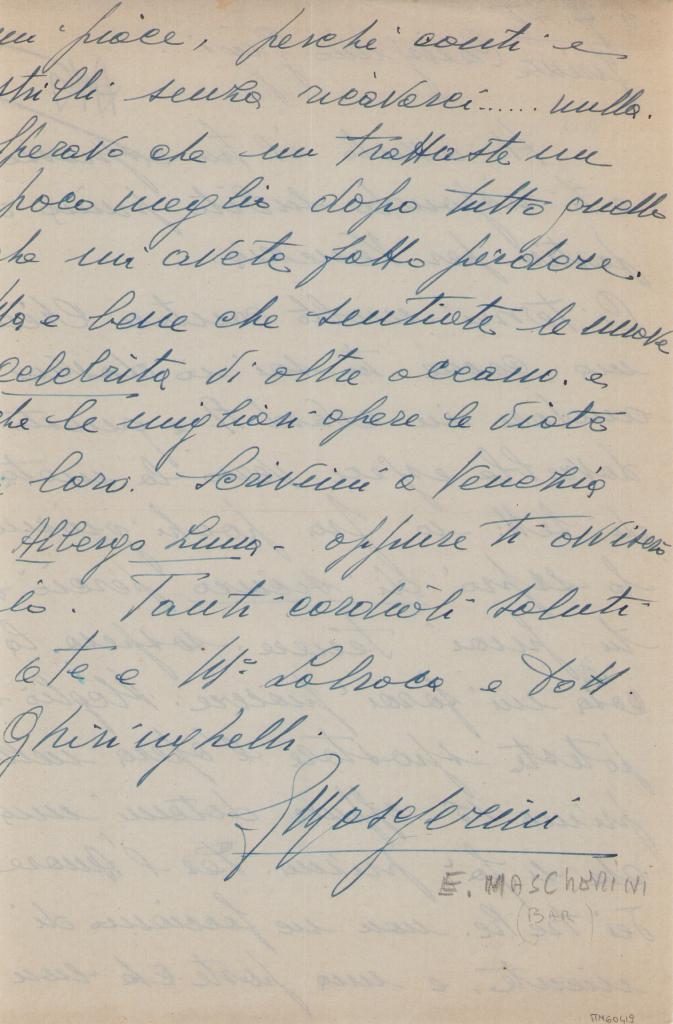 mi piace, perchè canti e
strilli senza ricavarci...... nulla.
Speravo che mi trattaste un
poco meglio dopo tutto quello
che mi avete fatto perdere.
Ma e bene che sentiate le nuove
celebrità di oltre oceano. e
che le migliori opere le diate
a loro. Scrivimi a Venezia
Albergo Luna - oppure ti avviserò
io. Tanti cordiali saluti
a te e Mº Labroca e Dott.
Ghiringhelli.
EMascherini
E. MASCHERINI
(BAR)